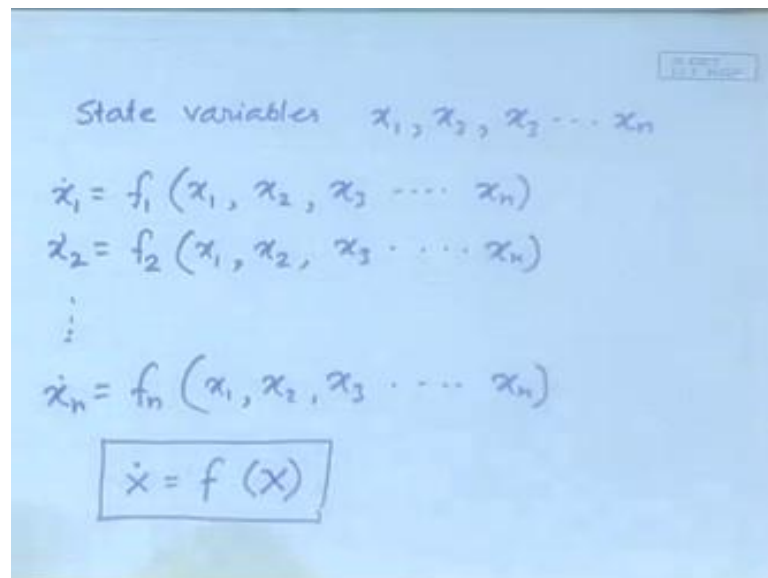 State variables x₁, x₂, x₃ --- xₙ
ẋ₁ = f₁ (x₁, x₂, x₃ ---- xₙ)
ẋ₂ = f₂ (x₁, x₂, x₃ . . . . xₙ)
⋮
ẋₙ = fₙ (x₁, x₂, x₃ . . . . xₙ)
ẋ = f (x)